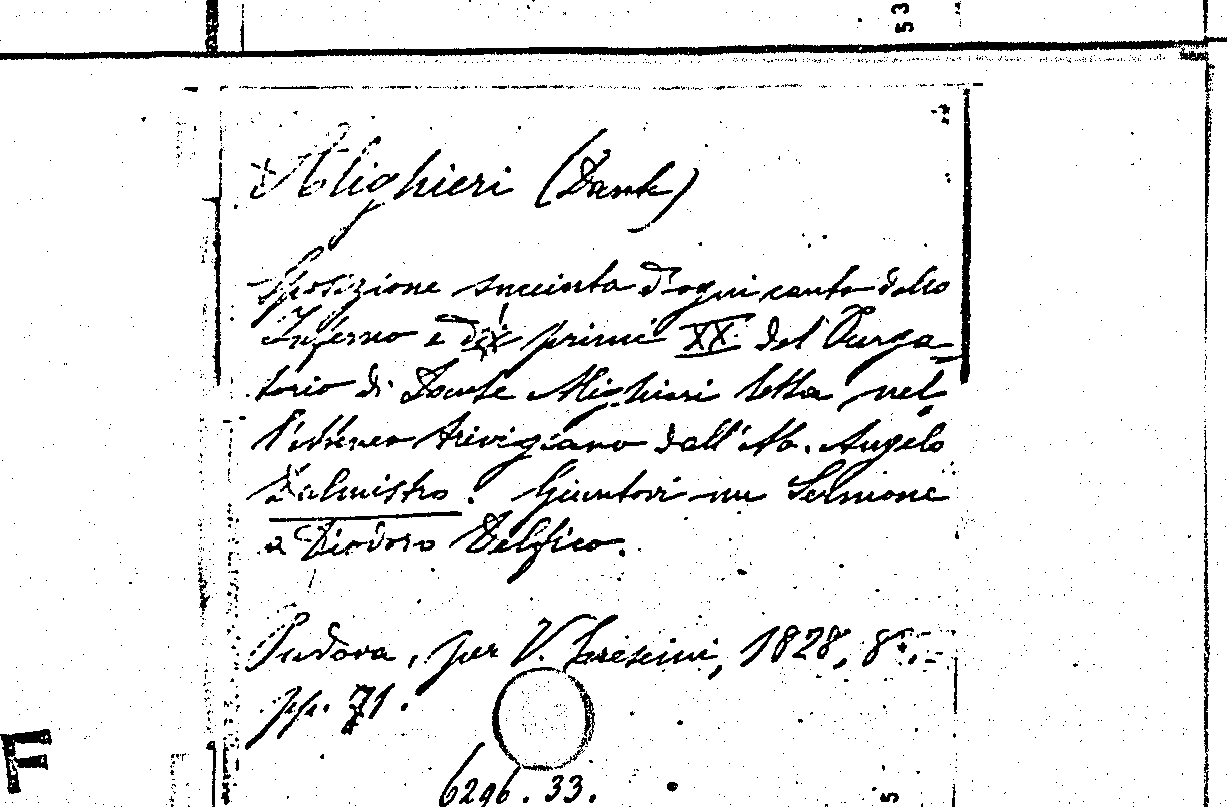 53
Alighieri (Dante)
Sposizione succinta d'ogni canto dello
Inferno e dei primi XX. del Purga=
torio di Dante Alighieri letta nel
l'Ateneo trivigiano dall'Ab. Angelo
Dalmistro. Giuntovi un Sermone
a Diodoro Delfico.
Padova, per V. Crescini, 1828, 8º.-
pp. 71.
F
6296.33.
5